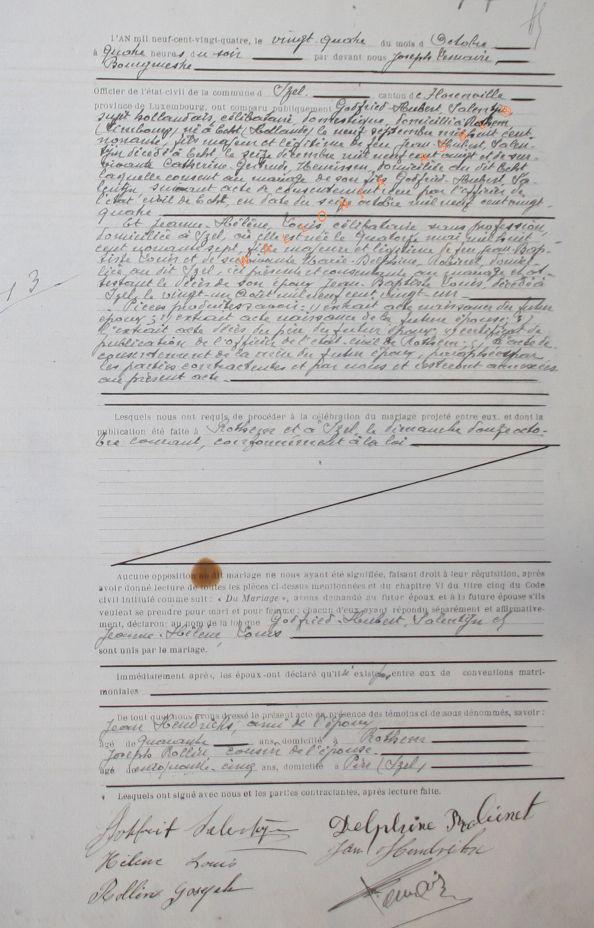 L'AN mil neuf-cent-vingt-quatre, le vingt quatre du mois d'Octobre
à quatre heures du soir par devant nous Joseph Lemaire,
Bourgmestre
Officier de l'état civil de la commune d'Izel canton de Florenville
province de Luxembourg, ont comparu publiquement Godfried Hubert Salentijn
sujet hollandais, célibataire, domestique, domicilié à Rothem
(Limbourg) né à Echt (Hollande) le neuf septembre mil huit cent
nonante, fils majeur et légitime de feu Jean Hubert Salen-
tijn décédé à Echt, le seize décembre mil neuf cent vingt et de sur-
vivante Catherine Gertrude domiciliée au dit Echt
laquelle consent au mariage de son fils Godfried Hubert Sa-
lentijn, suivant acte de consentement reçu par l'officier de
l'état civil de Echt, en date du octobre mil neuf cent vingt-
quatre
Et Jeanne-Hélène, Louis, célibataire sans profession,
domiciliée à Izel, où elle est née le quatorze mai mil huit
cent nonante sept, fille majeure et légitime de feu Jean Bap-
tiste Louis et de survivante Marie-Delphine, Robinet, domici-
liée au dit Izel, ici présente et consentante au mariage et at-
testant le décès de son époux Jean-Baptiste Louis, décédé à
Izel, le vingt-un août mil neuf cent vingt-un
Pièces produites savoir: 1) extrait acte naissance du futur
époux; 2) extrait acte naissance de la future épouse; 3)
l'extrait acte décès du père du futur époux; 4) certificat de
publication de l'officier de l'état-civil de Rothem; 5) l'acte de
consentement de la mère du futur époux, paraphées par
les parties contractantes et par nous et resteront annexées
au présent acte.
Lesquels nous ont requis de procéder à la célébration du mariage projeté entre eux, et dont la
publication été faite à Rothem et à Izel, le dimanche douze octo-
bre courant, conformément à la loi
Aucune opposition au dit mariage ne nous ayant été signifiée, faisant droit à leur réquisition, après
avoir donné lecture de toutes les pièces ci-dessus mentionnées et du chapitre VI du titre cinq du Code
civil intitulé comme suit : « Du Mariage », avons demandé au futur époux et à la future épouse s'ils
veulent se prendre pour mari et pour femme; chacun d'eux ayant répondu séparément et affirmative-
ment, déclarons au nom de la loi que Godfried-Hubert Salentijn et
Jeanne-Hélène, Louis
sont unis par le mariage.
Immédiatement après, les époux ont déclaré qu'il n'existe pas entre eux de conventions matri-
moniales
De tout quoi nous avons dressé le présent acte en présence des témoins ci-de sous dénommés, savoir :
Jean Hendriks, ami de l'époux
âgé de quarante ans, domicilié à Rothem
Joseph Rollin, cousin de l'épouse
âgé de cinquante-cinq ans, domicilié à Pin (Izel)
Lesquels ont signé avec nous et les parties contractantes, après lecture faite.
Salentijn Delphine Robinet
Hélène Louis Jan Hendriks
Rollin Joseph
13